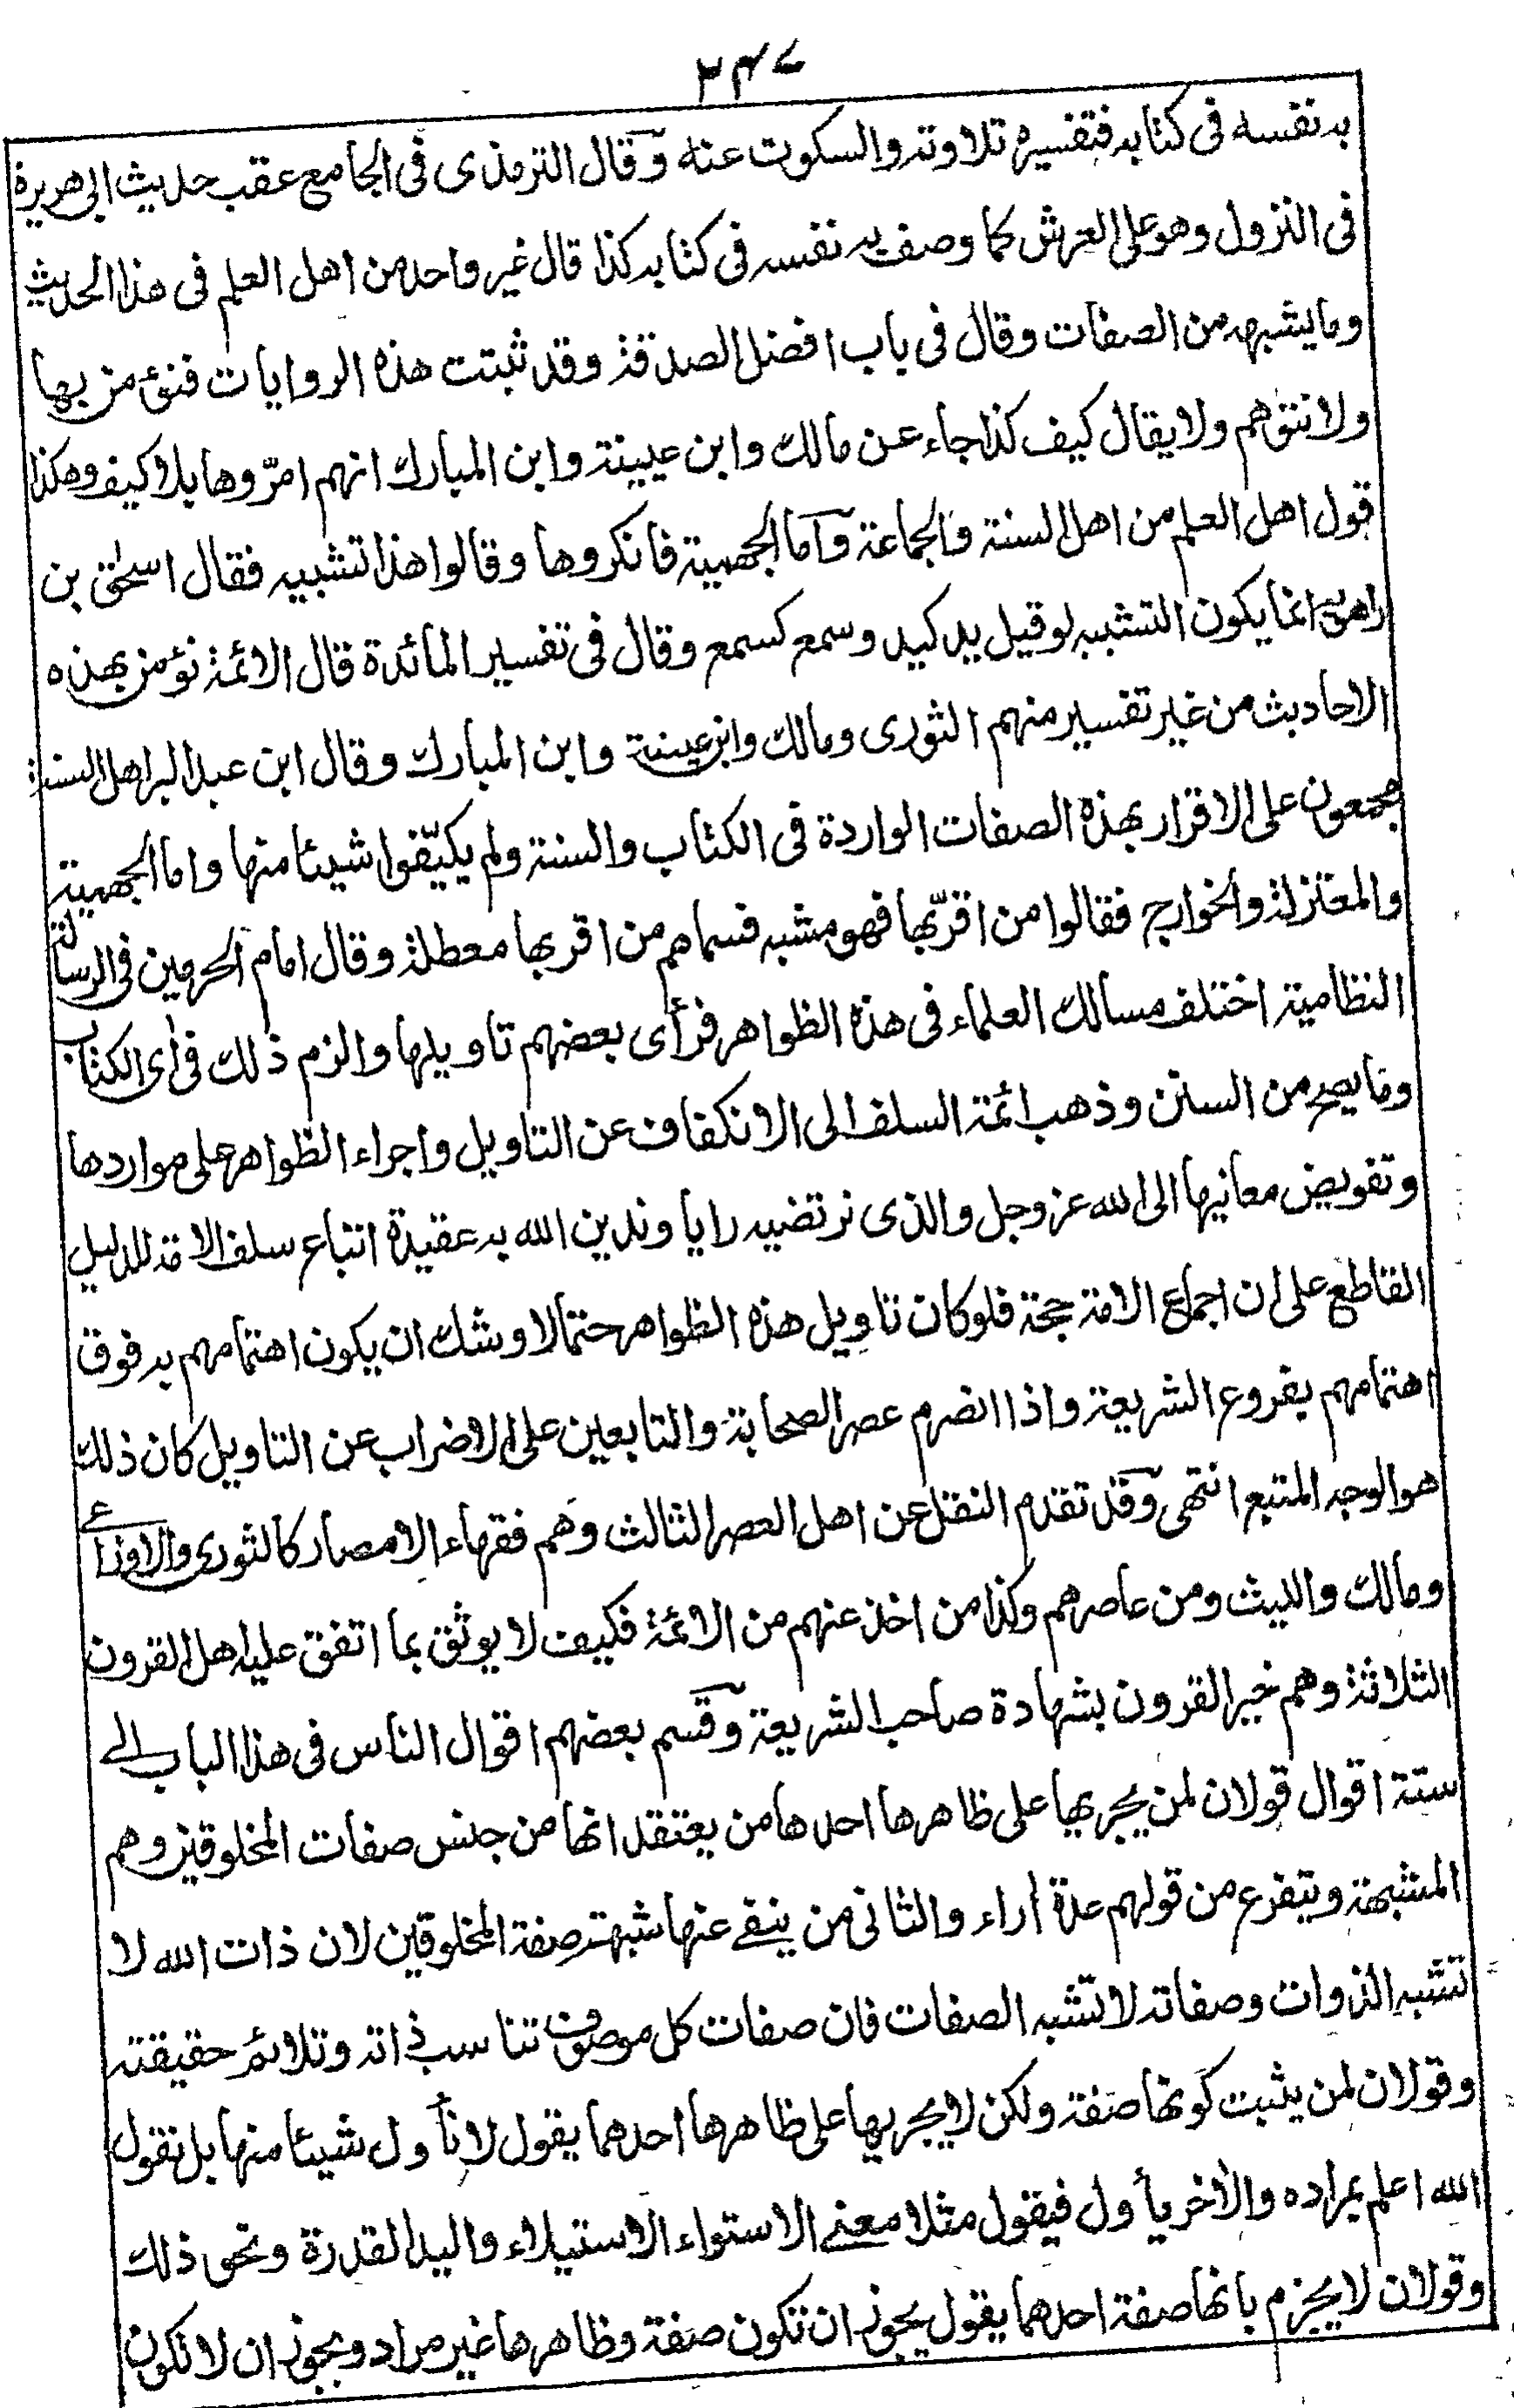 ٢٤٧
به نفسه فى كتابه فتفسيره تلاوته والسكوت عنه وقال الترمذى فى الجامع عقب حديث ابى هريرة
فى النزول وهو على العرش كما وصف به نفسه فى كتابه كذا قال غير واحد من اهل العلم فى هذا الحديث
وما يشبهه من الصفات وقال فى باب افضل الصدقة وقد ثبتت هذه الروايات فنؤمن بها
ولا نتوهم ولا يقال كيف كذا جاء عن مالك وابن عيينة وابن المبارك انهم امرّوها بلا كيف وهكذا
قول اهل العلم من اهل السنة والجماعة وآما الجهمية فانكروها وقالوا هذا تشبيه فقال اسحٰق بن
راهويه انما يكون التشبيه لو قيل يد كيد وسمع كسمع وقال فى تفسير المائدة قال الائمة نؤمن بهذه
الاحاديث من غير تفسير منهم الثورى ومالك وابن عيينة وابن المبارك وقال ابن عبد البر اهل السنة
مجمعون على الاقرار بهذه الصفات الواردة فى الكتاب والسنة ولم يكيّفوا شيئا منها واما الجهمية
والمعتزلة والخوارج فقالوا من اقرّ بها فهو مشبه فسماهم من اقر بها معطلة وقال امام الحرمين فى الرسالة
النظامية اختلف مسالك العلماء فى هذه الظواهر فرأى بعضهم تاويلها والزم ذلك فى أى الكتاب
وما يصح من السنن وذهب ائمة السلف الى الانكفاف عن التاويل واجراء الظواهر على مواردها
وتفويض معانيها الى الله عز وجل والذى نرتضيه رايا وندين الله به عقيدة اتباع سلف الامة للدليل
القاطع على ان اجماع الامة حجة فلو كان تاويل هذه الظواهر حتما لاوشك ان يكون اهتمامهم به فوق
اهتمامهم بفروع الشريعة واذا انصرم عصر الصحابة والتابعين على الاضراب عن التاويل كان ذلك
هو الوجه المتبع انتهى وقد تقدم النقل عن اهل العصر الثالث وهم فقهاء الامصار كالثورى والاوزاعے
ومالك والليث ومن عاصرهم وكذا من اخذ عنهم من الائمة فكيف لا يوثق بما اتفق عليه اهل القرون
الثلاثة وهم خير القرون بشهادة صاحب الشريعة وقسم بعضهم اقوال الناس فى هذا الباب الے
ستة اقوال قولان لمن يجريها على ظاهرها احدها من يعتقد انها من جنس صفات المخلوقين وهم
المشبهة ويتفرع من قولهم عدة أراء والثانى من ينفے عنها شبهة صفة المخلوقين لان ذات الله لا
تشبه الذوات وصفاته لا تشبه الصفات فان صفات كل موصوف تناسب ذاته وتلائم حقيقته
وقولان لمن يثبت كونها صفة ولكن لا يجريها على ظاهرها احدهما يقول لا نأول شيئا منها بل نقول
الله اعلم بمراده والأخر يأول فيقول مثلا معنے الاستواء الاستيلاء واليد القدرة ونحو ذلك
وقولان لا يجزم بانها صفة احدهما يقول يجوز ان تكون صفة وظاهرها غير مراد ويجوز ان لا تكون